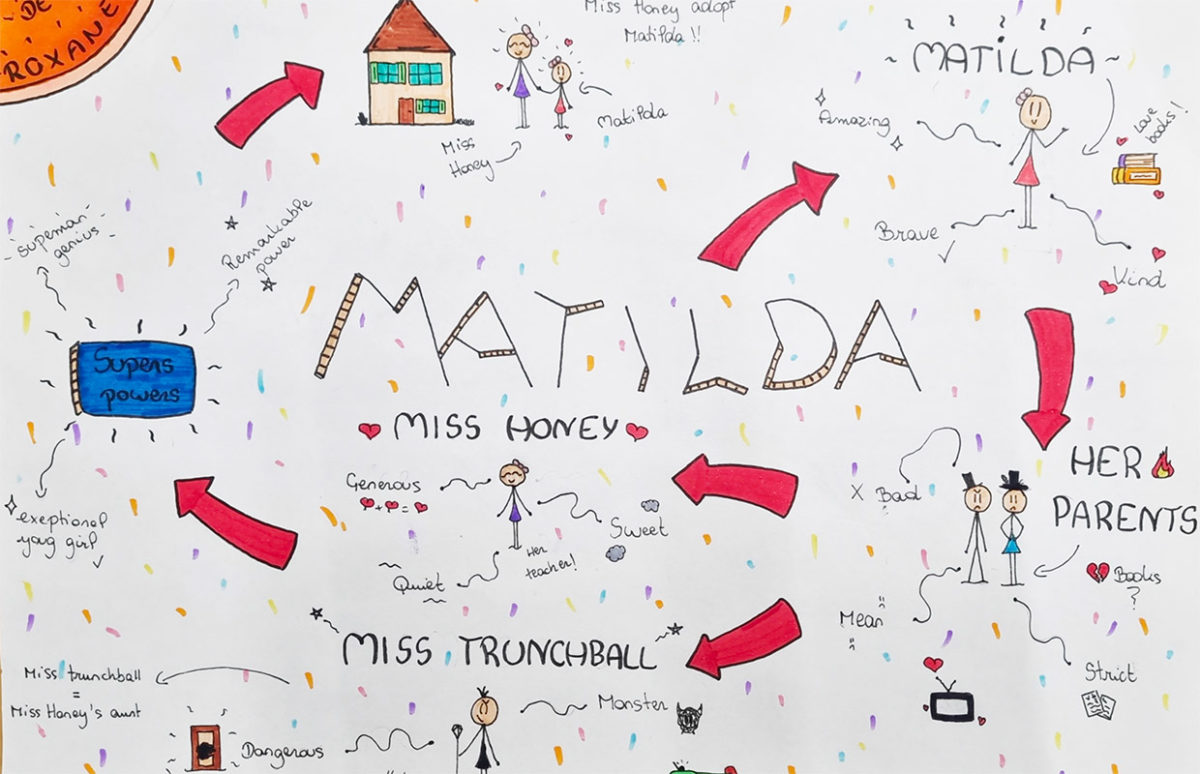 DE
ROXANE
Miss Honey adopt
Matilda !!
Matilda
Miss
Honey
~ MATILDA ~
Amazing
Love
books!
Brave
Kind
Superman
genius
Remarkable
power
Supers
powers
exeptional
yong girl
MATILDA
MISS HONEY
Generous
Sweet
Quiet
Her
teacher!
HER
PARENTS
X Bad
Books
?
Mean
Strict
MISS TRUNCHBALL
Miss trunchball
=
Miss Honey's aunt
Monster
Dangerous